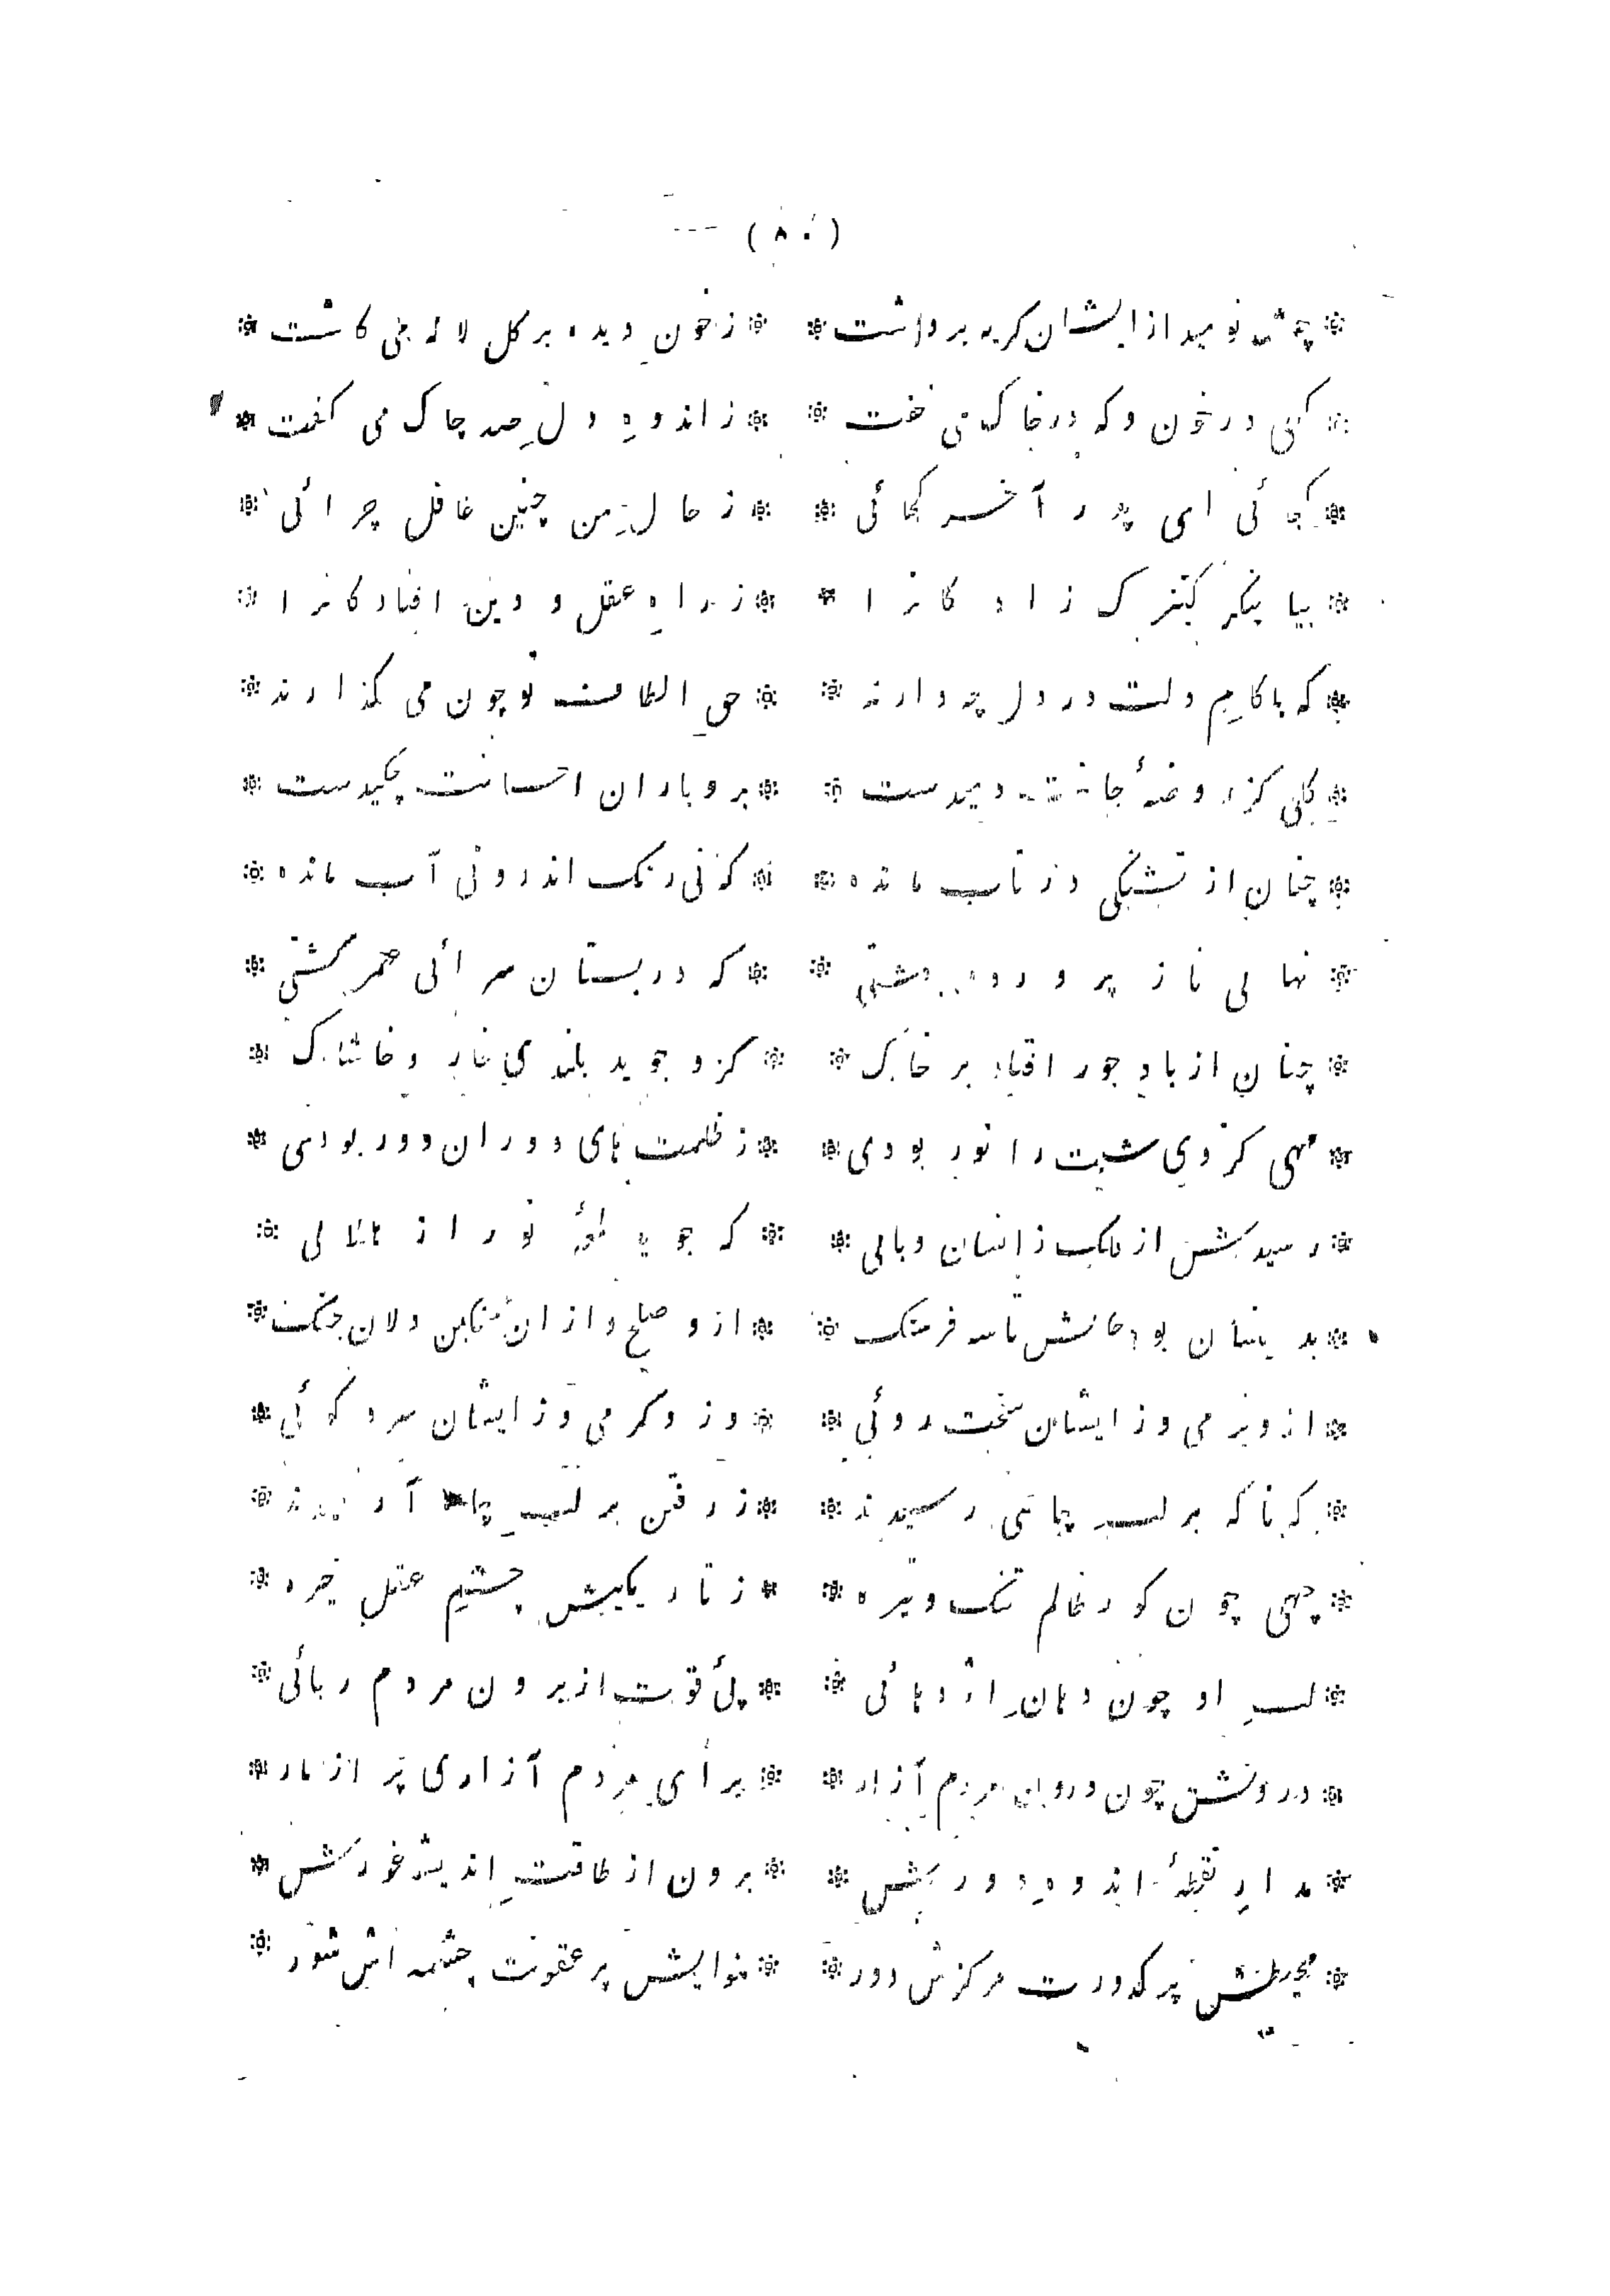 ( ۸۰ )
* چو شد نومید از ایشان کریه برداشت * ز خون دیده بر کل لاله می کاشت *
* کهی در خون و که در خاک می خفت * ز اندوه دل صد چاک می کفت *
* کجائی ای پدر آخر کجائی * ز حال من چنین غافل چرائی *
* بیا بنکر کنیزک زادکانرا * ز راه عقل و دین افتادکانرا *
* که با کام دلت در دل چه دارند * حق الطافت تو چون می کذارند *
* کلی کز روضهٔ جانت دمیدست * برو باران احسانت چکیدست *
* چنان از تشنکی در تاب مانده * که نی رنک اندرو نی آب مانده *
* نهالی ناز پرورد بهشتی * که در بستان سرائی عمر کشتی *
* چنان از باد جور افتاد بر خاک * کزو جوید بلندی خار و خاشاک *
* مهی کزوی شبت را نور بودی * ز ظلمت های دوران دور بودی *
* رسیدش از فلک زانسان وبالی * که جوید نور از هلالی *
* بدینسان بود حالش تا سه فرسنک * ازو صلح و ازان سنکین دلان جنک *
* ازو نرمی وز ایشان سخت روئی * وزو کرمی وز ایشان سرد کوئی *
* که ناکه بر لب چاهی رسیدند * ز رفتن بر لب چاه آرمیدند *
* چهی چون کور ظالم تنک و تیره * ز تاریکیش چشم عقل خیره *
* لب او چون دهان اژدهائی * پئ قوت از برون مردم ربائی *
* درونش چون درون مردم آزار * برای مردم آزاری پر از مار *
* مدار نقطهٔ اندوه دورش * برون از طاقت اندیشه غورش *
* محیطش پر کدورت مرکزش دور * هوایش پر عفونت چشمه اش شور *